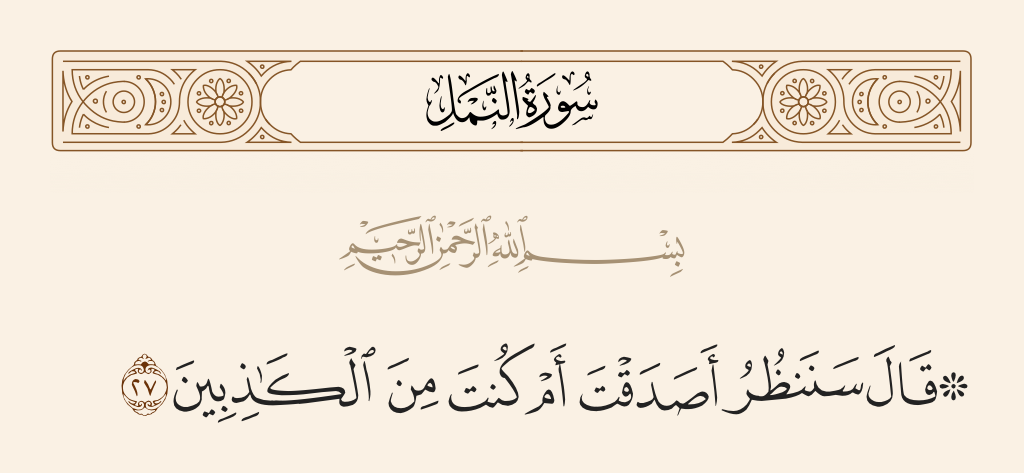 سُورَةُ النَّمۡلِ
بِسۡمِ ٱللَّهِ ٱلرَّحۡمَٰنِ ٱلرَّحِيمِ
۞قَالَ سَنَنظُرُ أَصَدَقۡتَ أَمۡ كُنتَ مِنَ ٱلۡكَٰذِبِينَ ٢٧